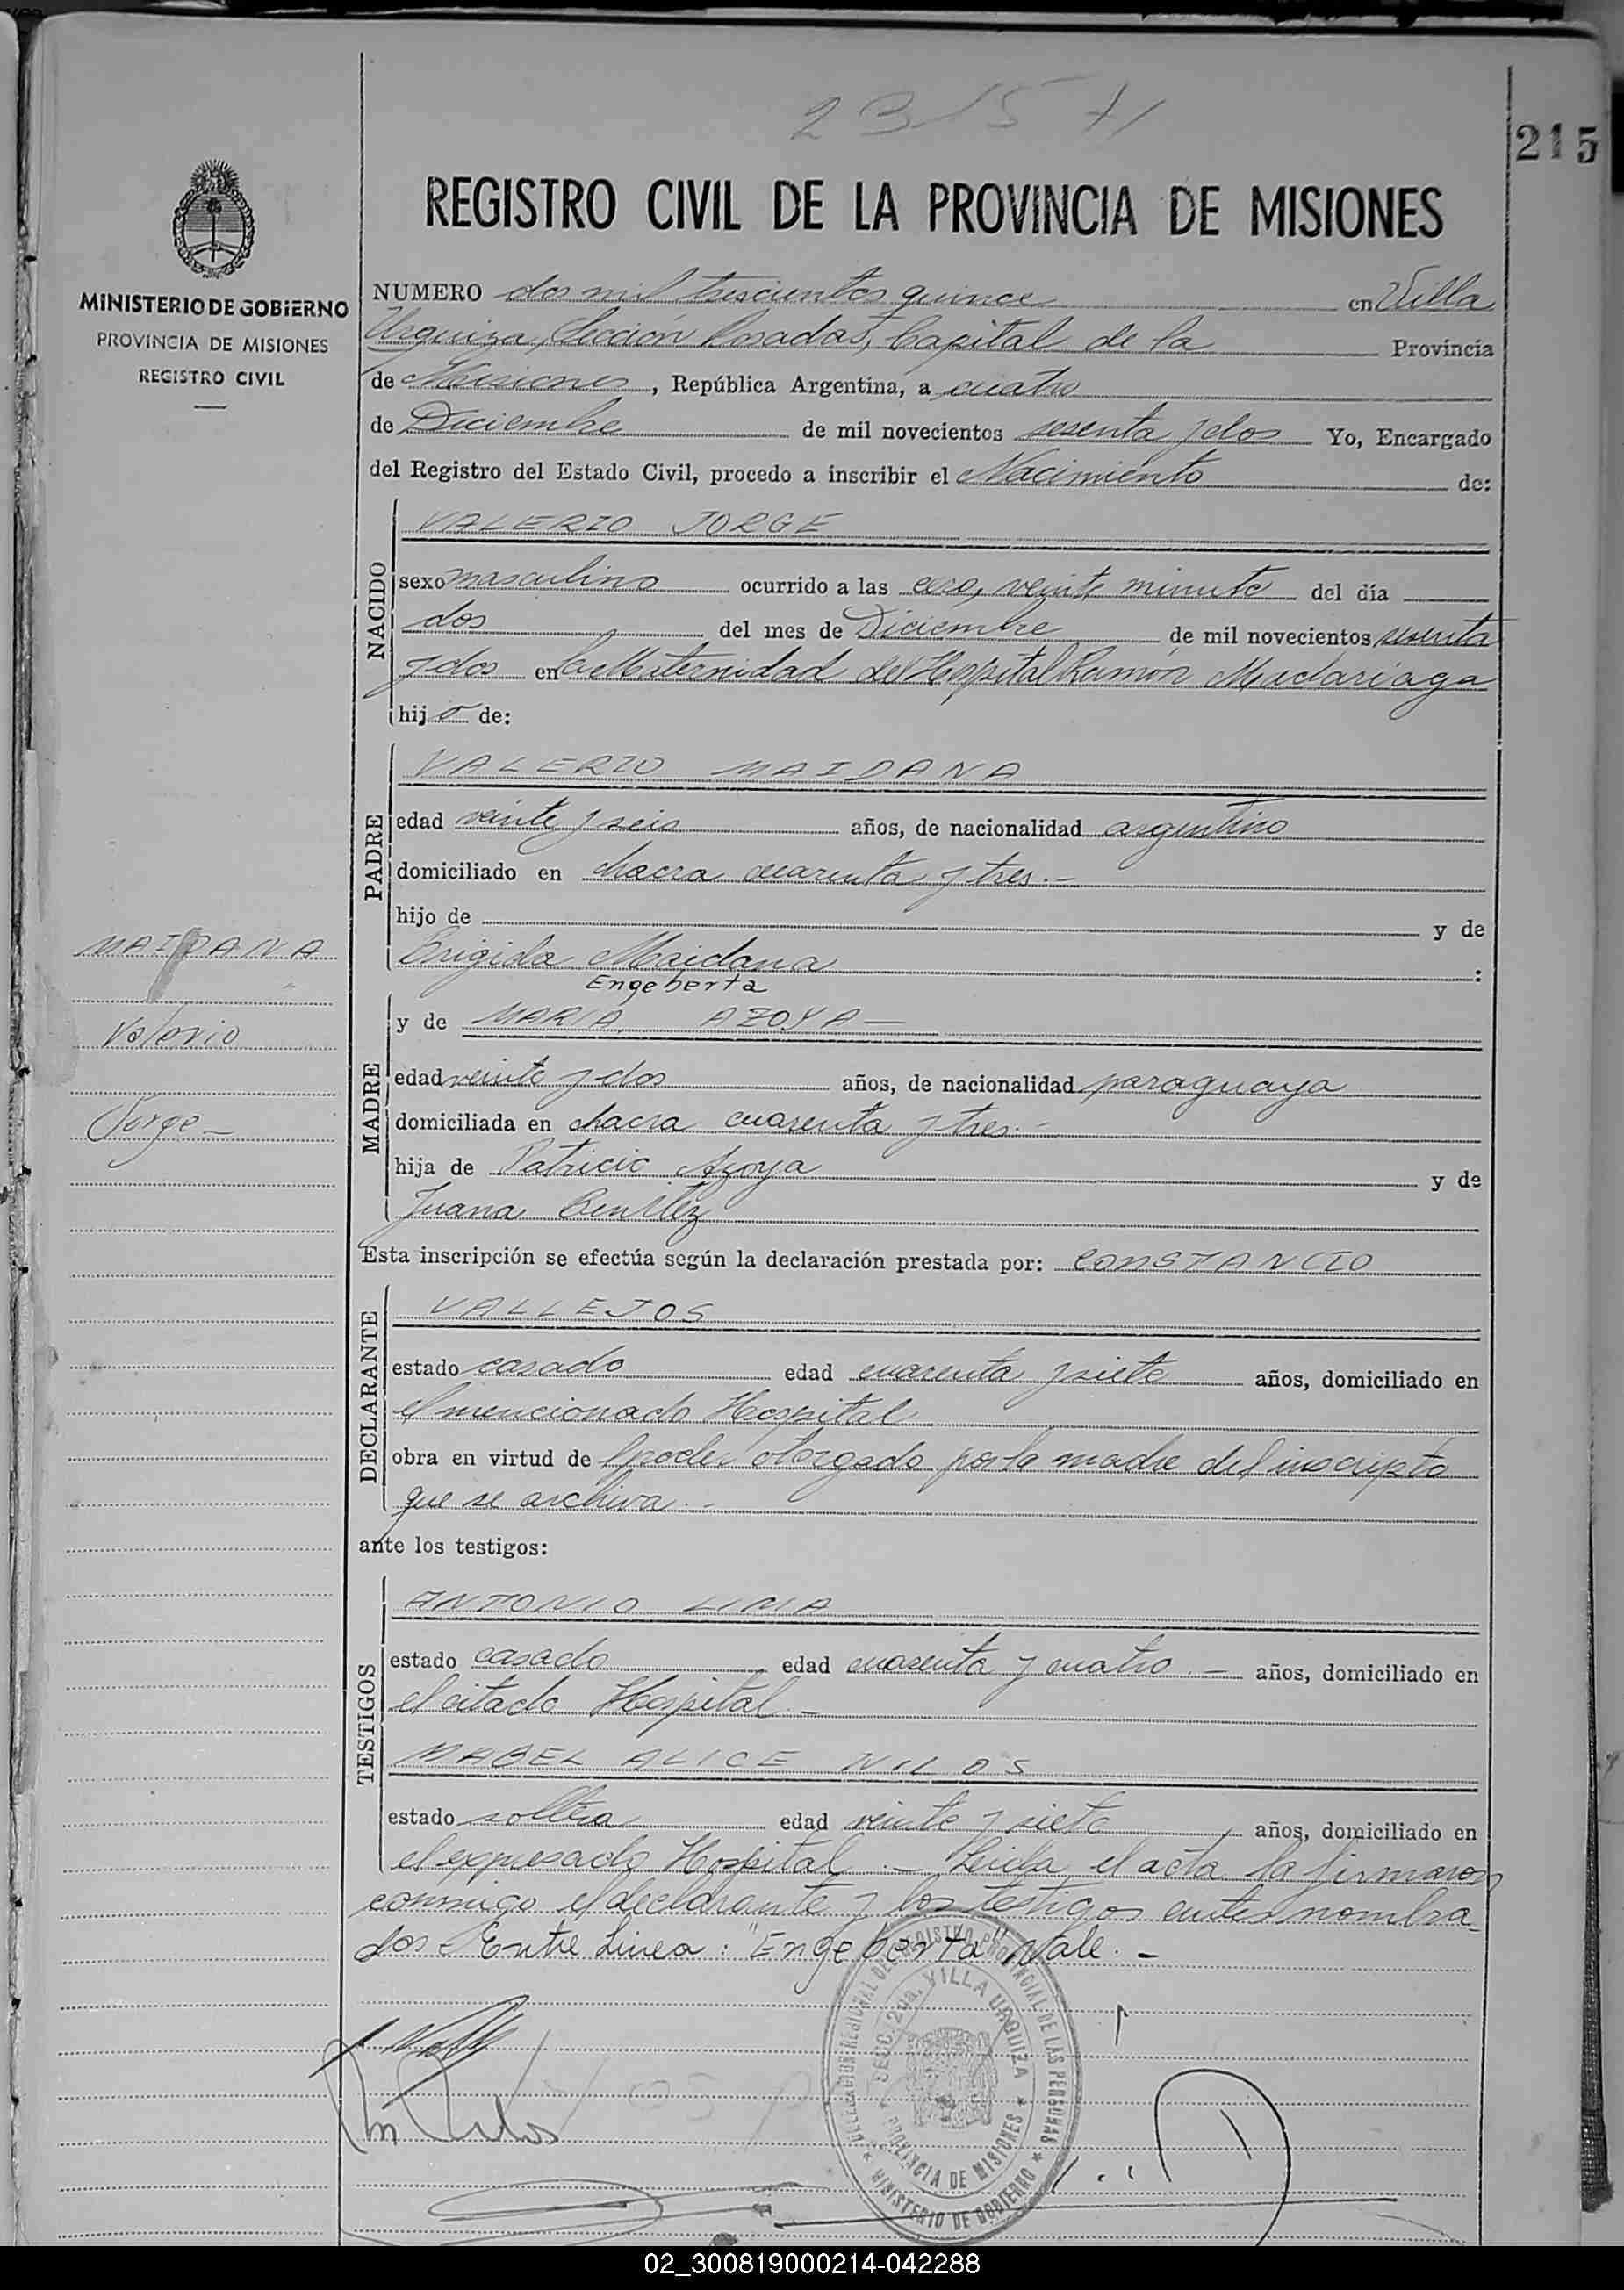 2315 71
215
REGISTRO CIVIL DE LA PROVINCIA DE MISIONES
MINISTERIO DE GOBIERNO
PROVINCIA DE MISIONES
REGISTRO CIVIL
NUMERO dos mil trescientos quince en Villa
Urquiza, Sección Posadas, Capital de la Provincia
de Misiones, República Argentina, a cuatro
de Diciembre de mil novecientos sesenta y dos Yo, Encargado
del Registro del Estado Civil, procedo a inscribir el Nacimiento de:
NACIDO
VALERIO JORGE
sexo masculino ocurrido a las cero, veinte minuto del día
dos del mes de Diciembre de mil novecientos sesenta
y dos en la Maternidad del Hospital Ramón Madariaga
hijo de:
PADRE
VALERIO MAIDANA
edad veinte y seis años, de nacionalidad argentino
domiciliado en chacra cuarenta y tres.-
hijo de y de
Brigida Maidana :
MAIDANA
Valerio
Jorge-
MADRE
Engeberta
y de MARIA AZOYA-
edad veinte y dos años, de nacionalidad paraguaya
domiciliada en chacra cuarenta y tres.-
hija de Patricio Azoya y de
Juana Benitez
Esta inscripción se efectúa según la declaración prestada por: CONSTANCIO
DECLARANTE
VALLEJOS
estado casado edad cuarenta y siete años, domiciliado en
el mencionado Hospital
obra en virtud de poder otorgado por la madre del inscripto
que se archiva.-
ante los testigos:
TESTIGOS
ANTONIO LIMA
estado casado edad cuarenta y cuatro.- años, domiciliado en
el citado Hospital.-
MABEL ALICE NILOS
estado soltera edad veinte y siete años, domiciliado en
el expresado Hospital.- Leida el acta la firmaron
conmigo el declarante y los testigos antes nombra-
dos Entre Linea: "Engeberta" Vale.-
DELEGACION REGIONAL DEL REGISTRO PROVINCIAL DE LAS PERSONAS
SECC. 2da. VILLA URQUIZA
PROVINCIA DE MISIONES
MINISTERIO DE GOBIERNO
02_300819000214-042288